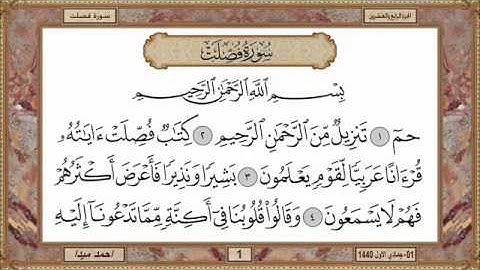 سورة فصلت
الجزء الرابع والعشرين
سُورَةُ فُصِّلَتْ
بِسْمِ اللَّهِ الرَّحْمَٰنِ الرَّحِيمِ
حمٓ ١ تَنزِيلٌ مِّنَ الرَّحْمَٰنِ الرَّحِيمِ ٢ كِتَٰبٌ فُصِّلَتْ ءَايَٰتُهُۥ
قُرْءَانًا عَرَبِيًّا لِّقَوْمٍ يَعْلَمُونَ ٣ بَشِيرًا وَنَذِيرًا فَأَعْرَضَ أَكْثَرُهُمْ
فَهُمْ لَا يَسْمَعُونَ ٤ وَقَالُوا۟ قُلُوبُنَا فِىٓ أَكِنَّةٍ مِّمَّا تَدْعُونَآ إِلَيْهِ
01- جمادي الاول 1440
1